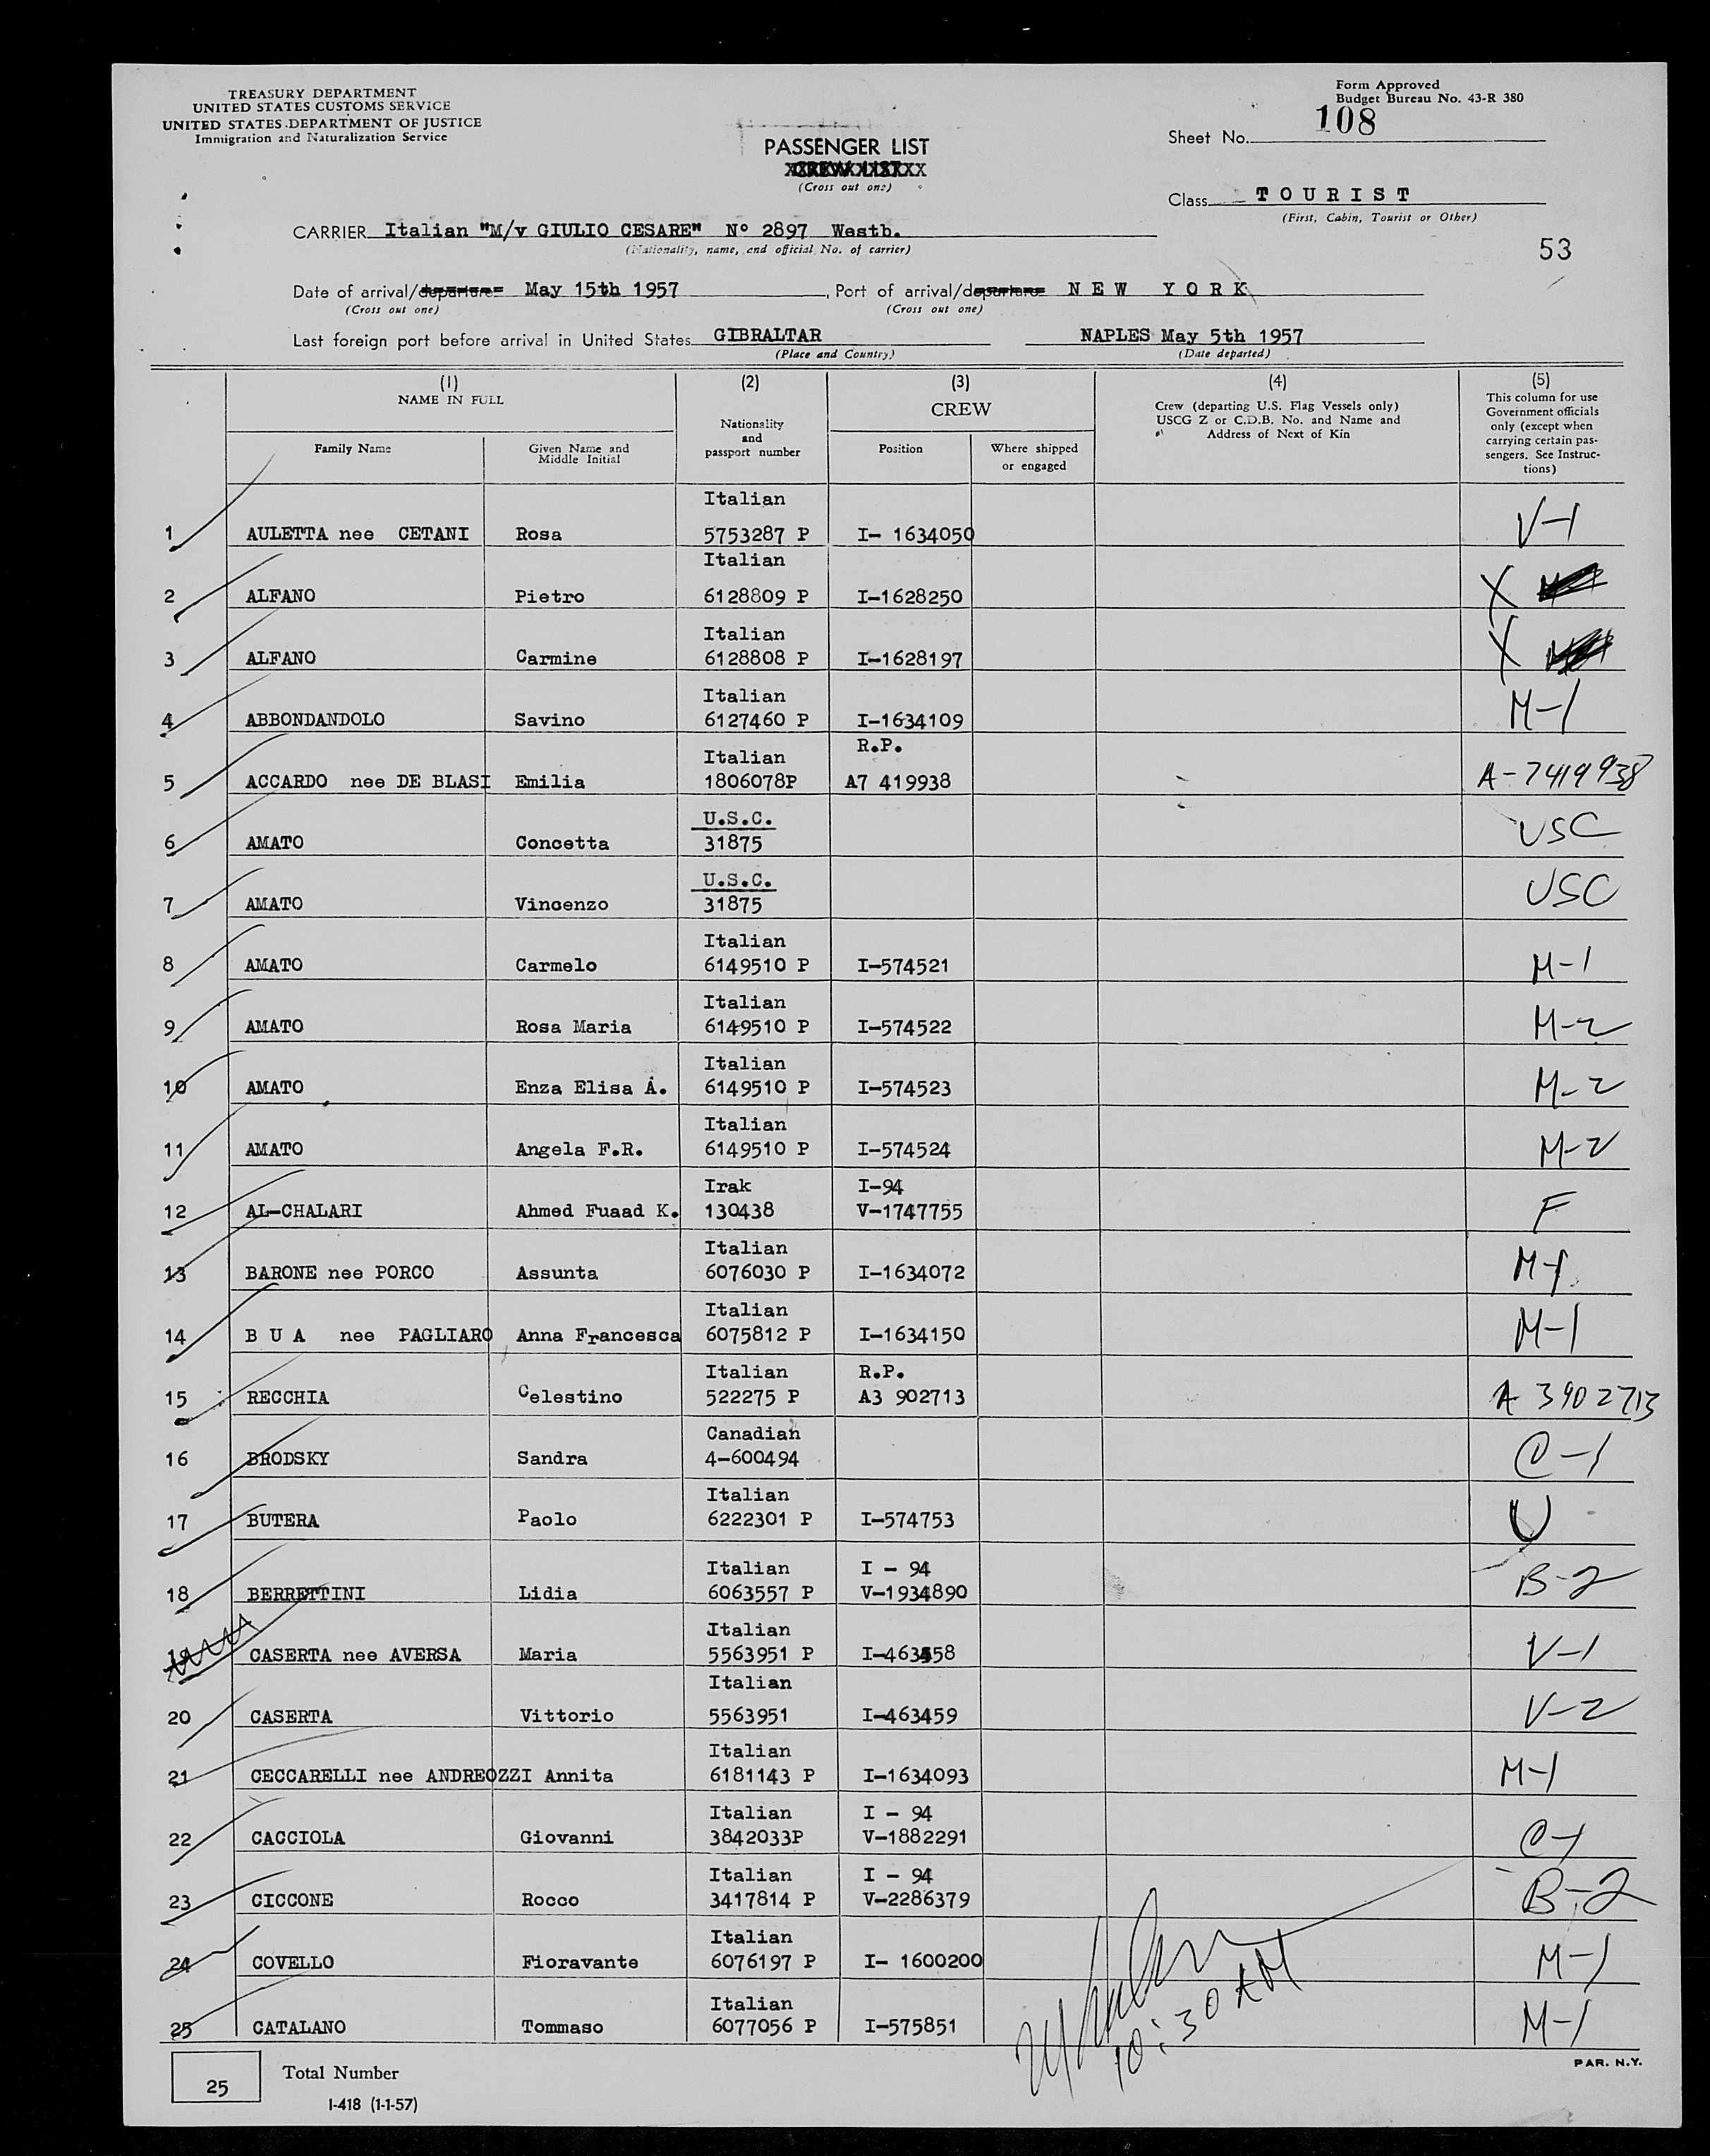 TREASURY DEPARTMENT
UNITED STATES CUSTOMS SERVICE
UNITED STATES DEPARTMENT OF JUSTICE
Immigration and Naturalization Service
Form Approved
Budget Bureau No. 43-R 380
PASSENGER LIST
CREW LIST
(Cross out one)
Sheet No. 108
Class TOURIST
(First, Cabin, Tourist or Other)
53
CARRIER Italian "M/v GIULIO CESARE" N° 2897 Westb.
(Nationality, name, and official No. of carrier)
Date of arrival/departure May 15th 1957, Port of arrival/departure NEW YORK
(Cross out one) (Cross out one)
Last foreign port before arrival in United States GIBRALTAR NAPLES May 5th 1957
(Place and Country) (Date departed)
(1) (2) (3) (4) (5)
NAME IN FULL
Family Name
Given Name and
Middle Initial
Nationality
and
passport number
CREW
Position
Where shipped
or engaged
Crew (departing U.S. Flag Vessels only)
USCG Z or C.D.B. No. and Name and
Address of Next of Kin
This column for use
Government officials
only (except when
carrying certain pas-
sengers. See Instruc-
tions)
Italian
1 AULETTA nee CETANI Rosa 5753287 P I- 1634050 V-1
Italian
2 ALFANO Pietro 6128809 P I-1628250 X
Italian
3 ALFANO Carmine 6128808 P I-1628197 X
Italian
4 ABBONDANDOLO Savino 6127460 P I-1634109 M-1
Italian R.P.
5 ACCARDO nee DE BLASI Emilia 1806078P A7 419938 A-7419938
U.S.C.
6 AMATO Concetta 31875 USC
U.S.C.
7 AMATO Vincenzo 31875 USC
Italian
8 AMATO Carmelo 6149510 P I-574521 M-1
Italian
9 AMATO Rosa Maria 6149510 P I-574522 M-2
Italian
10 AMATO Enza Elisa A. 6149510 P I-574523 M-2
Italian
11 AMATO Angela F.R. 6149510 P I-574524 M-2
Irak I-94
12 AL-CHALARI Ahmed Fuaad K. 130438 V-1747755 F
Italian
13 BARONE nee PORCO Assunta 6076030 P I-1634072 M-1
Italian
14 B U A nee PAGLIARO Anna Francesca 6075812 P I-1634150 M-1
Italian R.P.
15 RECCHIA Celestino 522275 P A3 902713 A 3902713
Canadian
16 BRODSKY Sandra 4-600494 C-1
Italian
17 BUTERA Paolo 6222301 P I-574753 U
Italian I - 94
18 BERRETTINI Lidia 6063557 P V-1934890 B-2
Italian
19 CASERTA nee AVERSA Maria 5563951 P I-463458 V-1
Italian
20 CASERTA Vittorio 5563951 I-463459 V-2
Italian
21 CECCARELLI nee ANDREOZZI Annita 6181143 P I-1634093 M-1
Italian I - 94
22 CACCIOLA Giovanni 3842033P V-1882291 C-1
Italian I - 94
23 CICCONE Rocco 3417814 P V-2286379 B-2
Italian
24 COVELLO Fioravante 6076197 P I- 1600200 M-1
Italian
25 CATALANO Tommaso 6077056 P I-575851 M-1
10:30 AM
25 Total Number
I-418 (1-1-57)
PAR. N.Y.